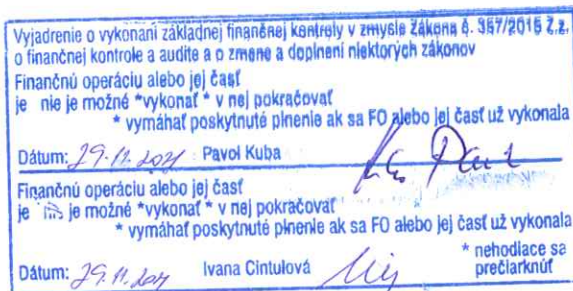 Vyjadrenie o vykonaní základnej finančnej kontroly v zmysle Zákona č. 357/2015 Z.z.
o finančnej kontrole a audite a o zmene a doplnení niektorých zákonov
Finančnú operáciu alebo jej časť
je nie je možné *vykonať * v nej pokračovať
* vymáhať poskytnuté plnenie ak sa FO alebo jej časť už vykonala
Dátum: 29.11.2021 Pavol Kuba
Finančnú operáciu alebo jej časť
je nie je možné *vykonať * v nej pokračovať
* vymáhať poskytnuté plnenie ak sa FO alebo jej časť už vykonala
* nehodiace sa
Dátum: 29.11.2021 Ivana Cintulová prečiarknúť